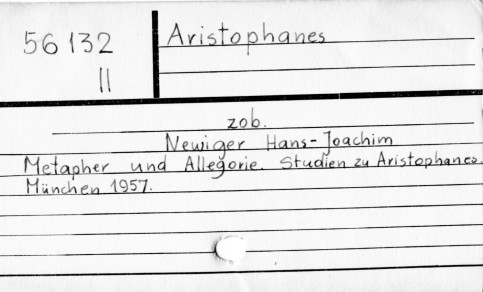 56132
II
Aristophanes
zob.
Newiger Hans-Joachim
Metapher und Allegorie. Studien zu Aristophanes.
München 1957.